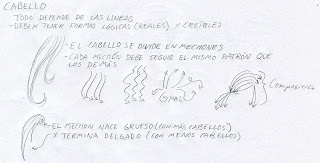 CABELLO
-TODO DEPENDE DE LAS LINEAS
-DEBEN TENER FORMAS LÓGICAS (REALES) Y CREÍBLES
-EL CABELLO SE DIVIDE EN MECHONES
-CADA MECHÓN DEBE SEGUIR EL MISMO PATRÓN QUE
LOS DEMÁS
COMPOSICIÓN
-EL MECHON NACE GRUESO (CON MÁS CABELLOS)
Y TERMINA DELGADO (CON MENOS CABELLOS)